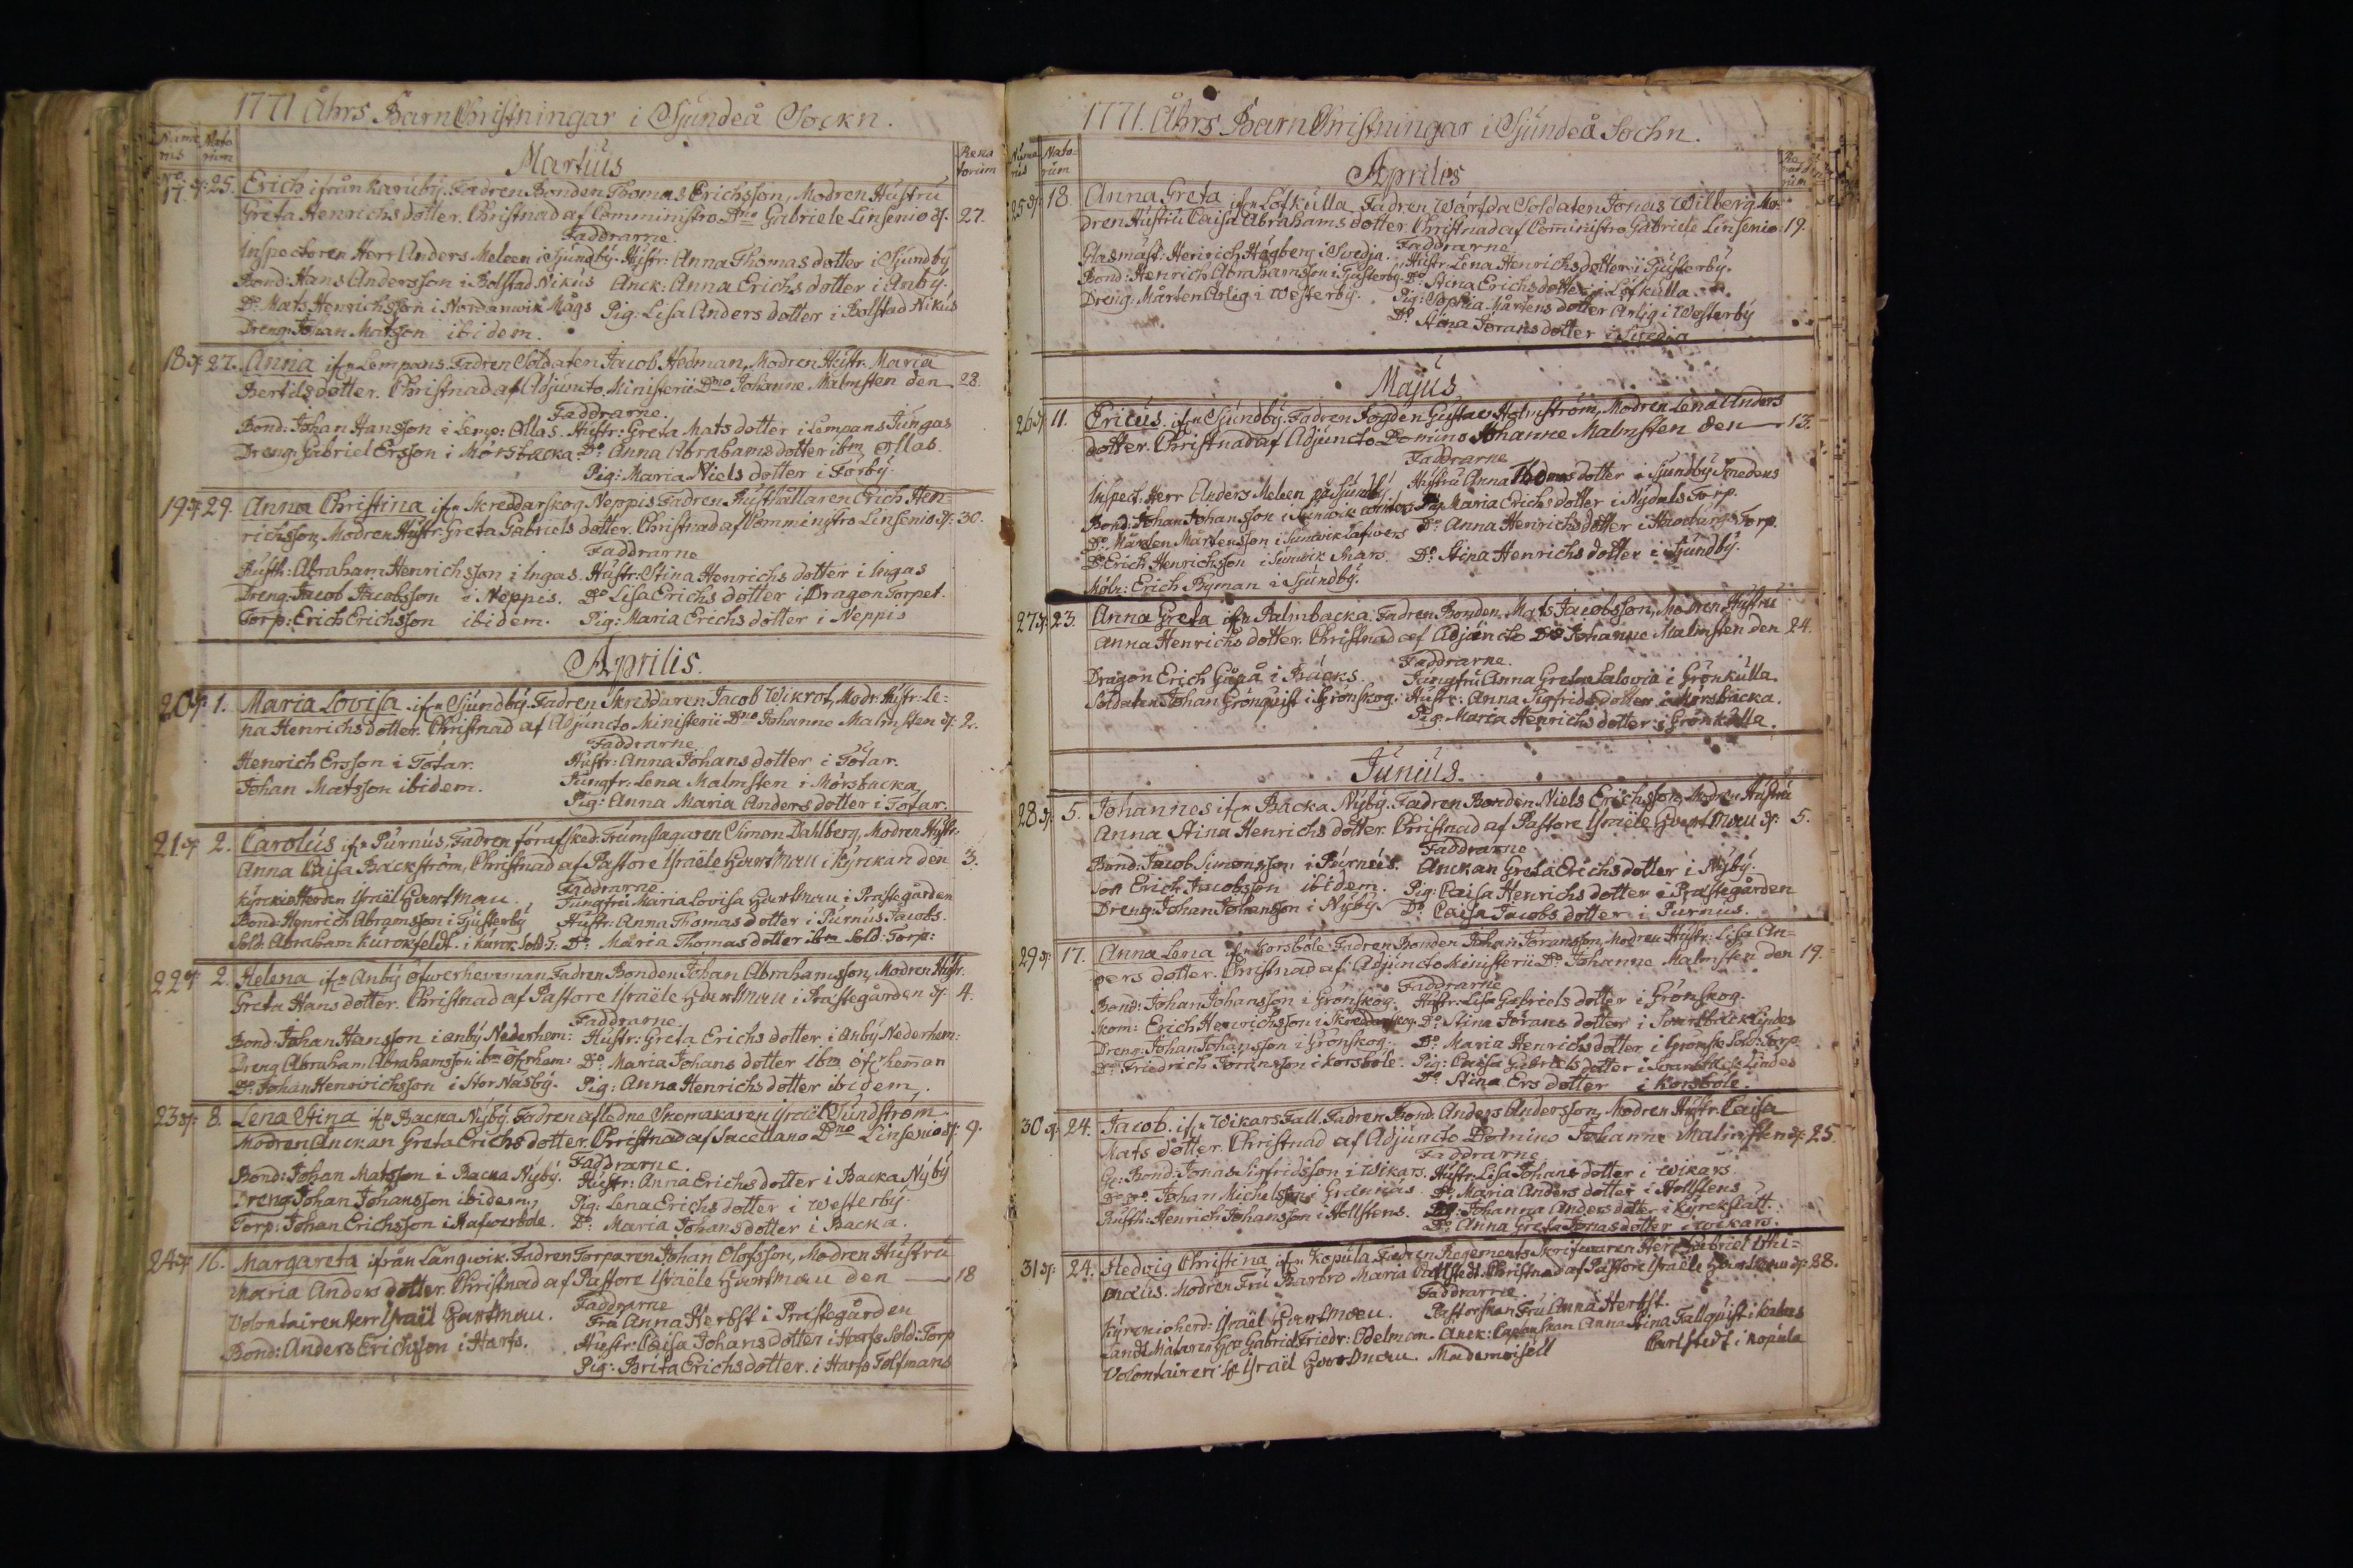 1771 Åhrs Barn Christningar i Sjundeå Sockn.
Nume rus Nato rum Rena torum
Martius
No. 17. d. 25. Erich ifrån Karuby. Fadren Bonden Thomas Erichsson, Modren Hustru
Greta Henrichs dotter. Christnad af Comministro Dno Gabriele Linsenio d. 27.
Faddrarne.
Inspectoren Herr Anders Meleen i Sjundby. Hustr: Anna Thomas dotter i Sjundby
Bond: Hans Andersson i Bolstad Nikus Anck: Anna Erichs dotter i Anby.
Do Mats Henrichsson i Nordanwik Mågs Pig: Lisa Anders dotter i Bolstad Nikus
Dreng: Johan Matsson ibidem.
18 d. 27. Anna ifn Lempans. Fadren Soldaten Jacob Hedman, Modren Hustr. Maria
Bertils dotter. Christnad af Adjuncto Ministerii Dno Johanne Malmsten den 28.
Faddrarne.
Bond: Johan Hansson i Lemp: Ollas. Hustr: Greta Mats dotter i Lempans Jungas
Dreng: Gabriel Ersson i Mörsbacka Do Anna Abrahams dotter ibm Ollas.
Pig: Maria Niels dotter i Förby.
19 d. 29. Anna Christina ifn Skreddarskog Neppis Fadren Rusthållaren Erich Hen=
richsson, Modren Hustr. Greta Gabriels dotter. Christnad af Comministro Linsenio d. 30.
Faddrarne
Rusth: Abraham Henrichsson i Ingas. Hustr: Stina Henrichs dotter i Ingas
Dreng: Jacob Jacobsson i Neppis. Do Lisa Erichs dotter i Dragon Torpet.
Torp: Erich Erichsson ibidem. Pig: Maria Erichs dotter i Neppis
Aprilis.
20 d. 1. Maria Lovisa ifn Sjundby. Fadren Skreddaren Jacob Wikrot, Modr: Hustr: Le=
na Henrichs dotter. Christnad af Adjuncto Ministerii Dno Johanne Malmsten d. 2.
Faddrarne
Henrich Ersson i Tötar. Hustr: Anna Johans dotter i Tötar.
Johan Matsson ibidem. Jungfr: Lena Malmsten i Mörsbacka
Pig: Anna Maria Anders dotter i Tötar.
21 d. 2. Carolus ifn Purnus, Fadren förafsked: Trumslagaren Simon Dahlberg, Modren Hustr:
Anna Caisa Backström, Christnad af Pastore Israële Hartman i Kyrckan den 3.
Faddrarne.
Kyrckioherden Israël Hartman. Jungfru Maria Lovisa Hartman i Prästegården
Bond: Henrich Abramsson i Tjusterby Hustr: Anna Thomas dotter i Purnus Jacobs.
Sold: Abraham Kurckfeldt i Kurck Sold T: Do: Maria Thomas dotter ibm Sold: Torp:
22 d. 2. Helena ifn Anby Öfwerhemman Fadren Bonden Johan Abrahamsson, Modren Hustr.
Greta Hans dotter. Christnad af Pastore Israële Hartman i Prästegården d. 4.
Faddrarne.
Bond: Johan Hansson i Anby Nederhem: Hustr: Greta Erichs dotter i Anby Nederhem:
Dreng Abraham Abrahamsson ibm Öfrhem: Do: Maria Johans dotter ibm Öfrheman
Do: Johan Henrichsson i Stor Nasby. Pig: Anna Henrichs dotter ibidem.
23 d. 8. Lena Stina ifn Backa Nyby. Fadren afledne Skomakaren Israël Sundström
Modren Anckan Greta Erichs dotter. Christnad af Sacellano Dno Linsenio d. 9.
Faddrarne.
Bond: Johan Matsson i Backa Nyby. Hustr: Anna Erichs dotter i Backa Nyby
Dreng Johan Johansson ibidem, Pig: Lena Erichs dotter i Westerby.
Torp: Johan Erichsson i Rafwerböle. Do: Maria Johans dotter i Backa.
24 d. 16. Margareta ifrån Långwik. Fadren Torparen Johan Olofsson, Modren Hustru
Maria Anders dotter. Christnad af Pastore Israële Hartman den 18
Faddrarne
Volontairen Herr Israël Hartman. Fru Anna Herbst i Prästegården
Bond: Anders Erichsson i Harfs. Hustr: Caisa Johans dotter i Harfs Sold: Torp
Pig: Brita Erichs dotter. i Harfs Tolfmans
1771. Åhrs Barn Christningar i Sjundeå Sochn.
Nume rus Nato= rum
Aprilis
25 d. 18. Anna Greta ifn Löfkulla Fadren Wärfda Soldaten Jonas Wilberg Mo=
dren Hustru Caisa Abrahams dotter. Christnad af Comministro Gabriele Linsenio 19.
Faddrarne
Glasmäst: Henrich Högberg i Svedja. Hustr: Lena Henrichs dotter i Tjusterby.
Bond: Henrich Abrahamsson i Tjusterby. Do Stina Erichs dotter i Löfkulla
Dreng. Mårten Arlig i Westerby. Pig: Sophia Mårtens dotter Arlig i Westerby
Do Stina Jörans dotter i Svedja
Majus
26 d. 11. Ericus ifn Sjundby. Fadren Fogden Gustav Holmström, Modren Lena Anders
dotter. Christnad af Adjuncto Domino Johanne Malmsten den 13.
Faddrarne
Inspect: Herr Anders Meleen på Sjundby. Hustru Anna Thomas dotter i Sjundby Smedens
Bond: Johan Johansson i Sunwik Winters Pig Maria Erichs dotter i Nydals Torp.
Do Mårten Mårtensson i Sunwik Do Anna Henrichs dotter i Torp.
Do Erich Henrichsson i Sunwik Snars. Do Stina Henrichs dotter i Sjundby.
Möln: Erich Byman i Sjundby.
27 d. 23. Anna Greta ifn Palmbacka Fadren Bonden Mats Jacobsson, Modren Hustru
Anna Henrichs dotter. Christnad af Adjuncto Dno Johanne Malmsten den 24.
Faddrarne.
Dragon Erich Gågå i Bäcks. Jungfru Anna Greta Salovia i Grönkulla
Soldaten Johan Grönquist i Grönskog. Hustr: Anna Sigfrids dotter i Mörsbacka.
Pig: Maria Henrichs dotter i Grönkulla.
Junius.
28 d. 5. Johannes ifn Backa Nyby. Fadren Bonden Niels Erichsson, Modren Hustru
Anna Stina Henrichs dotter. Christnad af Pastore Israële Hartman d. 5.
Faddrarne
Bond: Jacob Simonsson i Purnus. Anckan Greta Erichs dotter i Nyby.
Son Erich Jacobsson ibidem. Pig: Caisa Henrichs dotter i Prästegården
Dreng: Johan Johansson i Nyby. Do Caisa Jacobs dotter i Purnus.
29 d. 17. Anna Lena ifn Korsböle. Fadren Bonden Johan Jöransson, Modren Hustr: Lisa An=
ders dotter. Christnad af Adjuncto Ministerii Do Johanne Malmsten den 19.
Faddrarne
Bond: Johan Johansson i Grönskog. Hustr: Lisa Gabriels dotter i Grönskog.
Skom: Erich Henrichsson i Skreddarskog Do: Stina Jörans dotter i Svartbäck Lindes
Dreng: Johan Johansson i Grönskog. Do Maria Henrichs dotter i Grönsk: Sold: Torp
Do Friedrich Jöransson i Korsböle. Pig: Caisa Gabriels dotter i Svartbäck Lindes
Do Stina Ers dotter i Korsböle.
30 d. 24. Jacob. ifn Wikars Fall. Fadren Bond. Anders Andersson, Modren Hustr. Caisa
Mats dotter. Christnad af Adjuncto Domino Johanne Malmsten d. 25.
Faddrarne
Bond: Jonas Sigfridsson i Wikars. Hustr: Lisa Johans dotter i Wikars.
Do Johan Michelsson i Do Maria Anders dotter i Hollstens
Rusth: Henrich Johansson i Hollstens. Pig: Johanna Anders dotter i Kyrckslätt.
Do: Anna Greta Jonas dotter i Wikars.
31 d. 24. Hedvig Christina ifn Kopula Fadren Regements Skrifwaren Herr Gabriel Ithi=
mäus. Modren Fru Barbro Maria Carlstedt. Christnad af Pastore Israële Hartman d. 28.
Faddrarne.
Kyrckioherd: Israël Hartman. Pastorskan Fru Anna Herbst.
Landt Mätaren Gabriel Friedr: Edelman. Anck: Anna Stina Tallquist i
Volontairen Israël Hartman. Mademoisell Carlstedt i Kopula